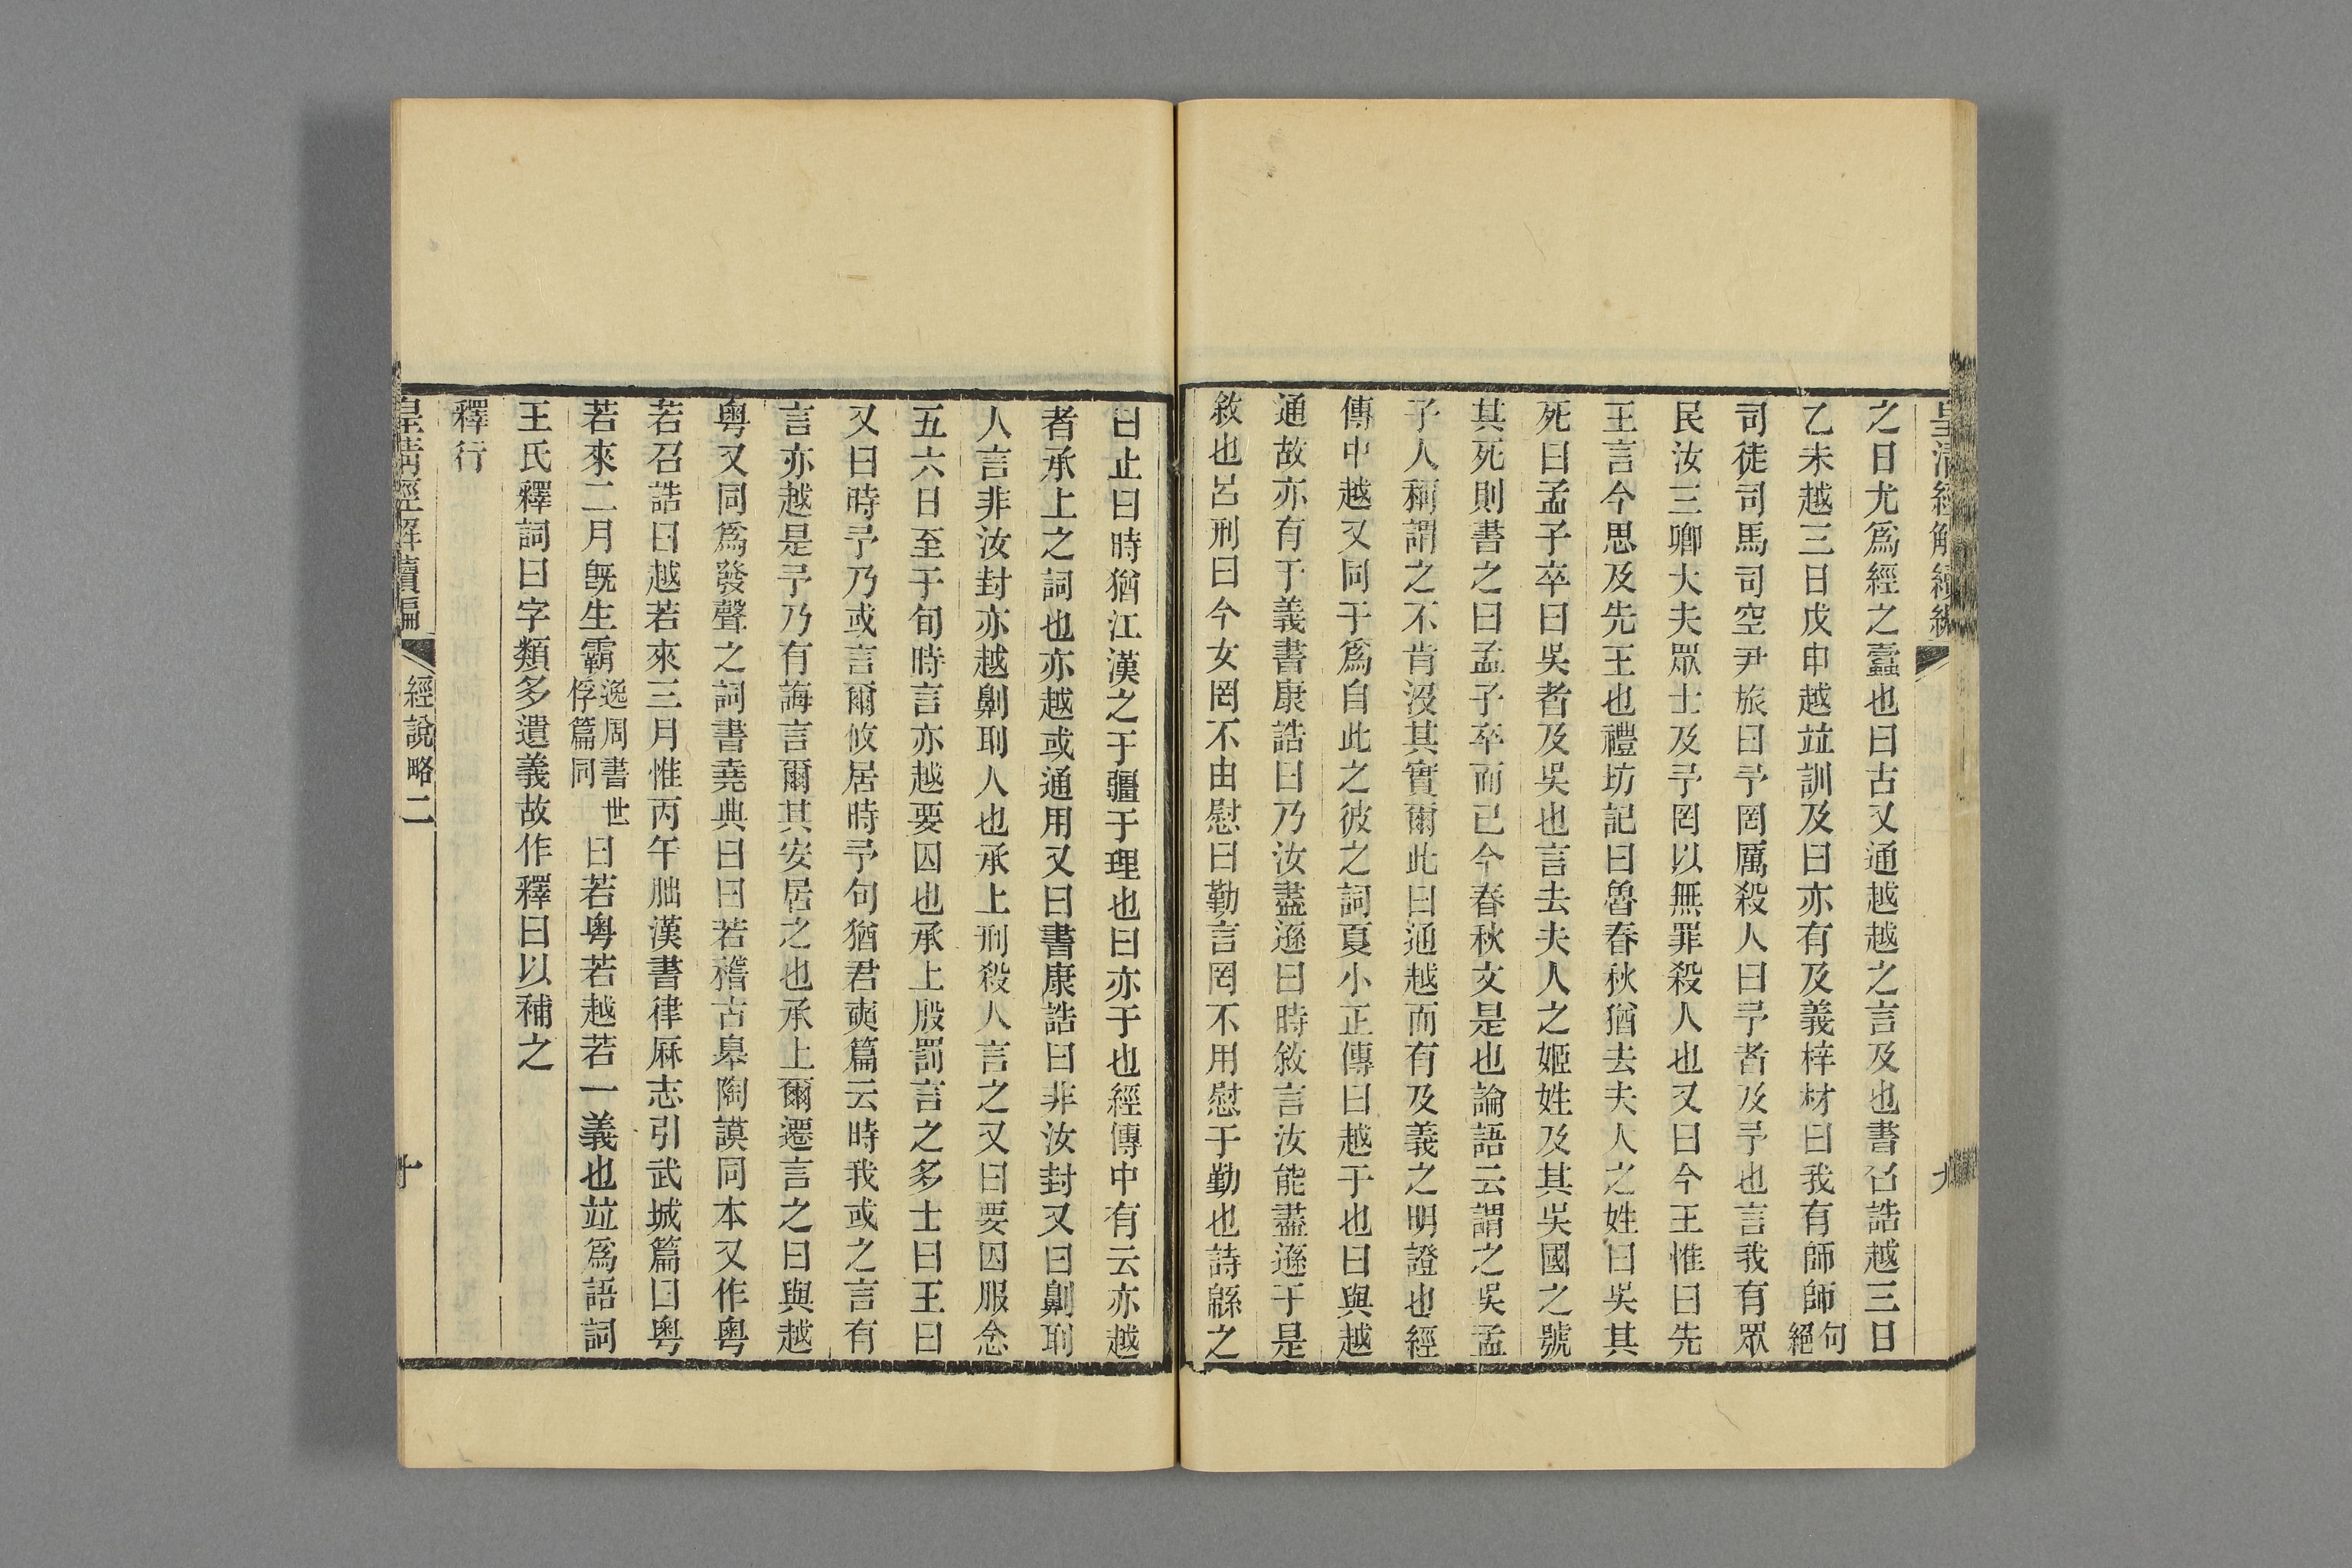 皇清經解續編
九
之日尤爲經之蠹也曰古又通越越之言及也書召誥越三日
乙未越三日戊申越竝訓及曰亦有及義梓材曰我有師師句絕
司徒司馬司空尹旅曰予罔厲殺人曰予者及予也言我有眾
民汝三卿大夫眾士及予罔以無罪殺人也又曰今王惟曰先
王言今思及先王也禮坊記曰魯春秋猶去夫人之姓曰吳其
死曰孟子卒曰吳者及吳也言去夫人之姬姓及其吳國之號
其死則書之曰孟子卒而已今春秋文是也論語云謂之吳孟
子人稱謂之不肯沒其實爾此曰通越而有及義之明證也經
傳中越又同于爲自此之彼之詞夏小正傳曰越于也曰與越
通故亦有于義書康誥曰乃汝盡遜曰時敘言汝能盡遜于是
敘也呂刑曰今女罔不由慰曰勤言罔不用慰于勤也詩緜之
曰止曰時猶江漢之于疆于理也曰亦于也經傳中有云亦越
者承上之詞也亦越或通用又曰書康誥曰非汝封又曰劓刵
人言非汝封亦越劓刵人也承上刑殺人言之又曰要囚服念
五六日至于旬時言亦越要囚也承上殷罰言之多士曰王曰
又曰時予乃或言爾攸居時予句猶君奭篇云時我或之言有
言亦越是予乃有誨言爾其安居之也承上爾遷言之曰與越
粵又同爲發聲之詞書堯典曰曰若稽古臯陶謨同本又作粵
若召誥曰越若來三月惟丙午朏漢書律厤志引武城篇曰粵
若來二月旣生霸逸周書世俘篇同曰若粵若越若一義也竝爲語詞
王氏釋詞曰字類多遺義故作釋曰以補之
釋行
皇清經解續編
經說略二
十